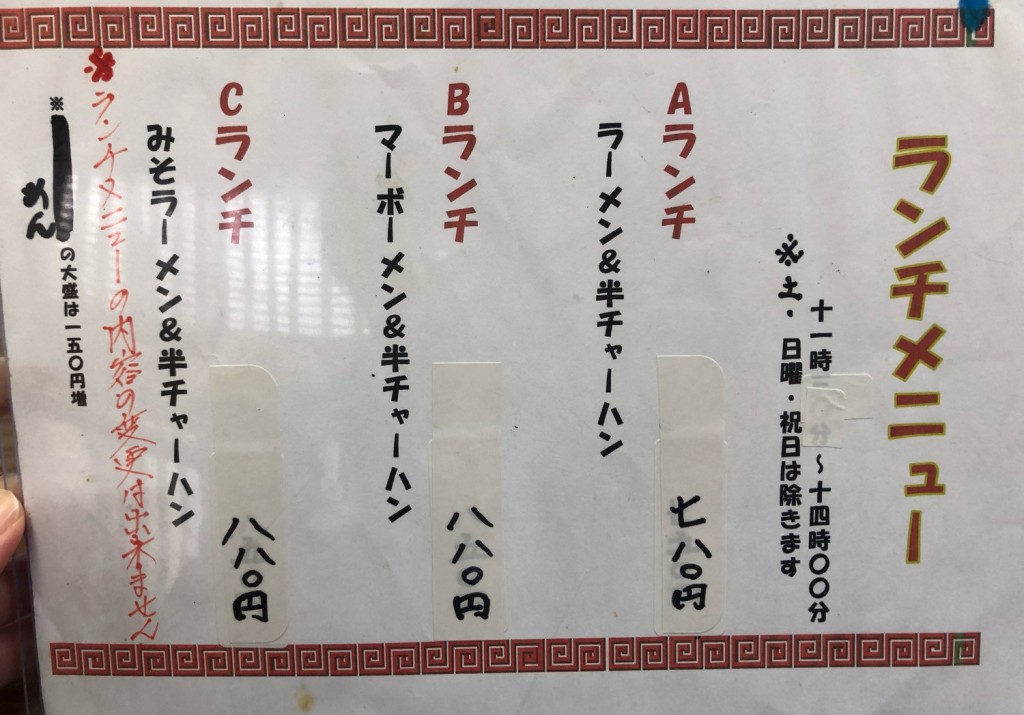 ランチメニュー
十一時 ～十四時〇〇分
※土・日曜・祝日は除きます
Aランチ
ラーメン&半チャーハン
七八〇円
Bランチ
マーボーメン&半チャーハン
八八〇円
Cランチ
みそラーメン&半チャーハン
八八〇円
※ランチメニューの内容の変更は出来ません
※めんの大盛は一五〇円増